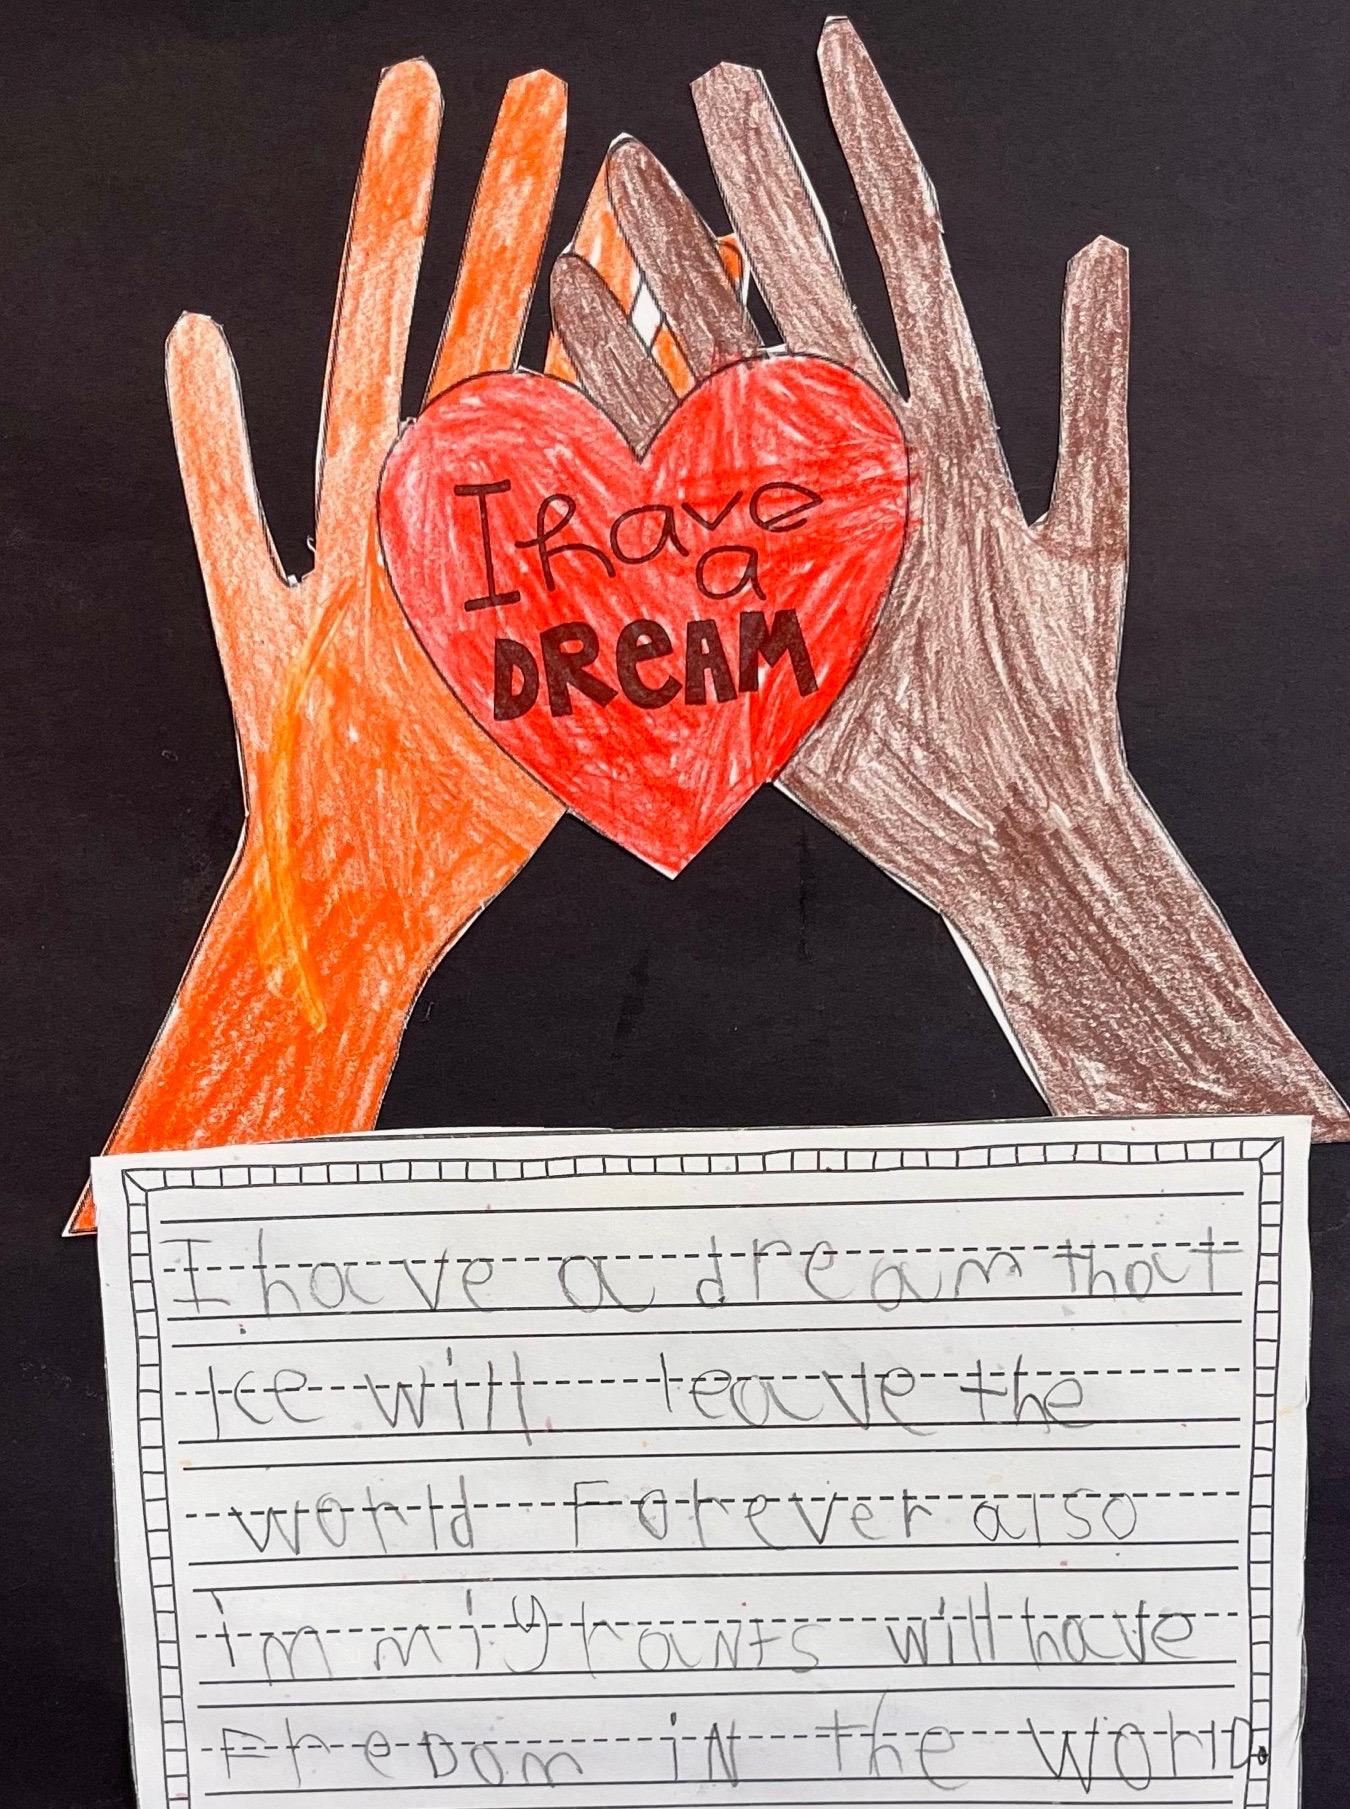 I have
a
DREAM
I have a dream that
Ice will leave the
world Forever also
immigrants will have
FreDom iN the WorlD.